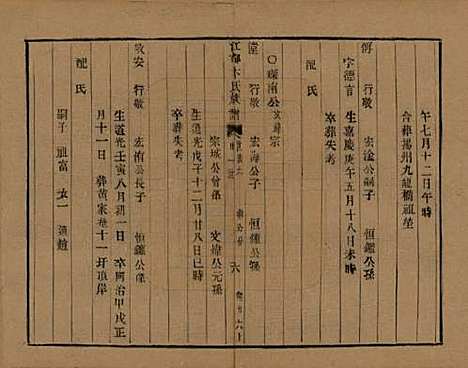 午七月十二日午時
合葬揚州九龍橋祖塋
行敬 宏淦公嗣子 恒鑑公孫
字德言 生嘉慶庚午五月十八日未時
卒葬失考
配氏
○璨南公支歸宗
行敬 宏海公子 恒鐘公孫
宗城公曾孫 文煒公元孫
生道光戊子十二月廿八日巳時
卒葬失考
江都卞氏族譜
六
敬安 行敬 宏楠公長子 恒鑑公孫
生道光壬寅八月初一日 卒同治甲戌正
月十一日 葬黄家巷十一圩項岸
配氏
嗣子 祉富